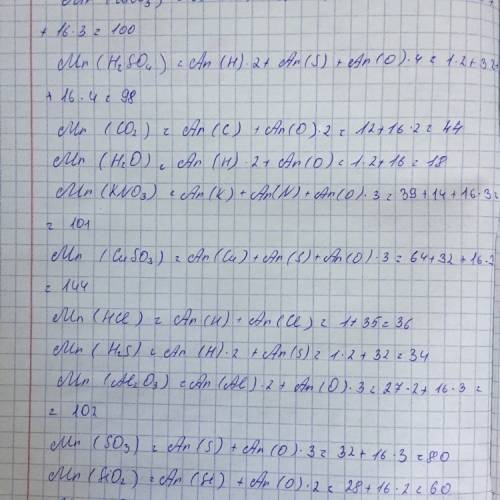 + 16·3 = 100
Mr (H₂SO₄) = Ar (H)·2 + Ar (S) + Ar (O)·4 = 1·2 + 32
+ 16·4 = 98
Mr (CO₂) = Ar (C) + Ar (O)·2 = 12 + 16·2 = 44
Mr (H₂O) = Ar (H)·2 + Ar (O) = 1·2 + 16 = 18
Mr (KNO₃) = Ar (K) + Ar (N) + Ar (O)·3 = 39 + 14 + 16·3 =
= 101
Mr (CuSO₃) = Ar (Cu) + Ar (S) + Ar (O)·3 = 64 + 32 + 16·3
= 144
Mr (HCl) = Ar (H) + Ar (Cl) = 1 + 35 = 36
Mr (H₂S) = Ar (H)·2 + Ar (S) = 1·2 + 32 = 34
Mr (Al₂O₃) = Ar (Al)·2 + Ar (O)·3 = 27·2 + 16·3 =
= 102
Mr (SO₃) = Ar (S) + Ar (O)·3 = 32 + 16·3 = 80
Mr (SiO₂) = Ar (Si) + Ar (O)·2 = 28 + 16·2 = 60